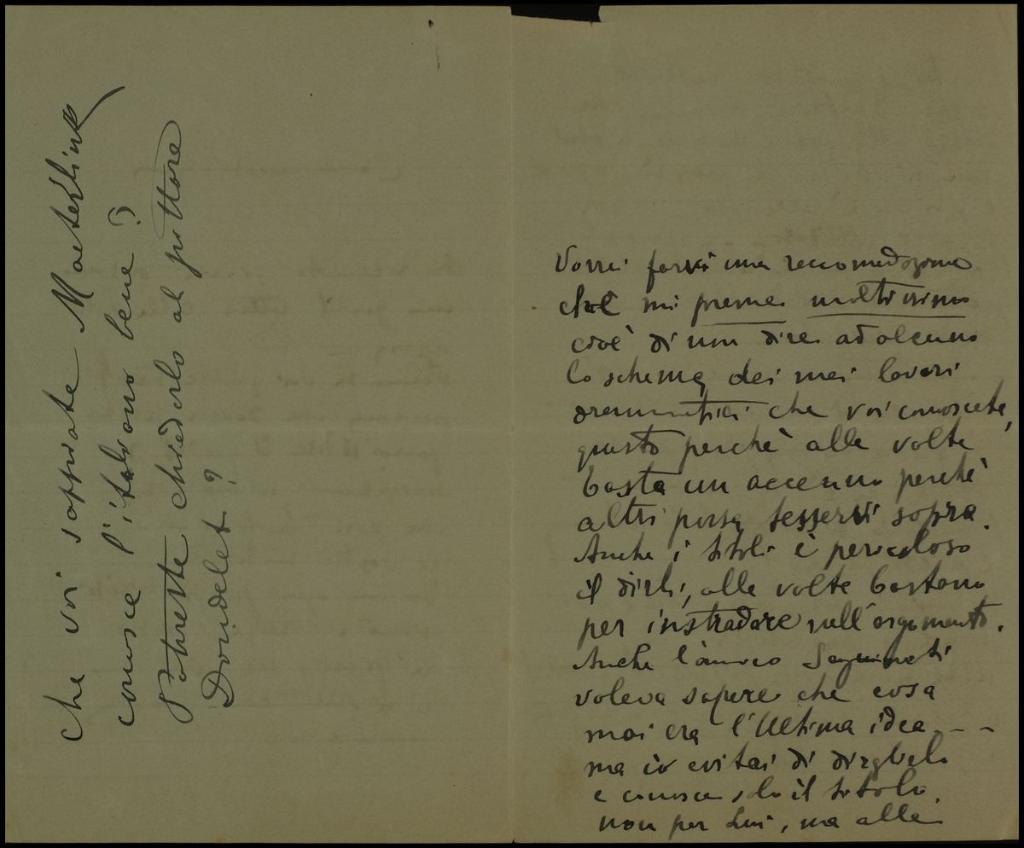 Che voi sappiate Maeterlink
conosce l'italiano bene?
Potreste chiederlo al pittore
Doudelet?
Vorrei farvi una raccomedazione
che mi preme moltissimo
cioè di non dire ad alcuno
lo schema dei miei lavori
drammatici che voi conoscete,
questo perchè alle volte
basta un accenno perchè
altri possa tesservi sopra.
Anche i titoli è pericoloso
il dirli, alle volte bastano
per instradare sull'argomento.
Anche l'amico
voleva sapere che cosa
mai era l'Ultima idea - -
ma io evitai di dirglielo
e conosce solo il titolo.
non per Lui, ma alle